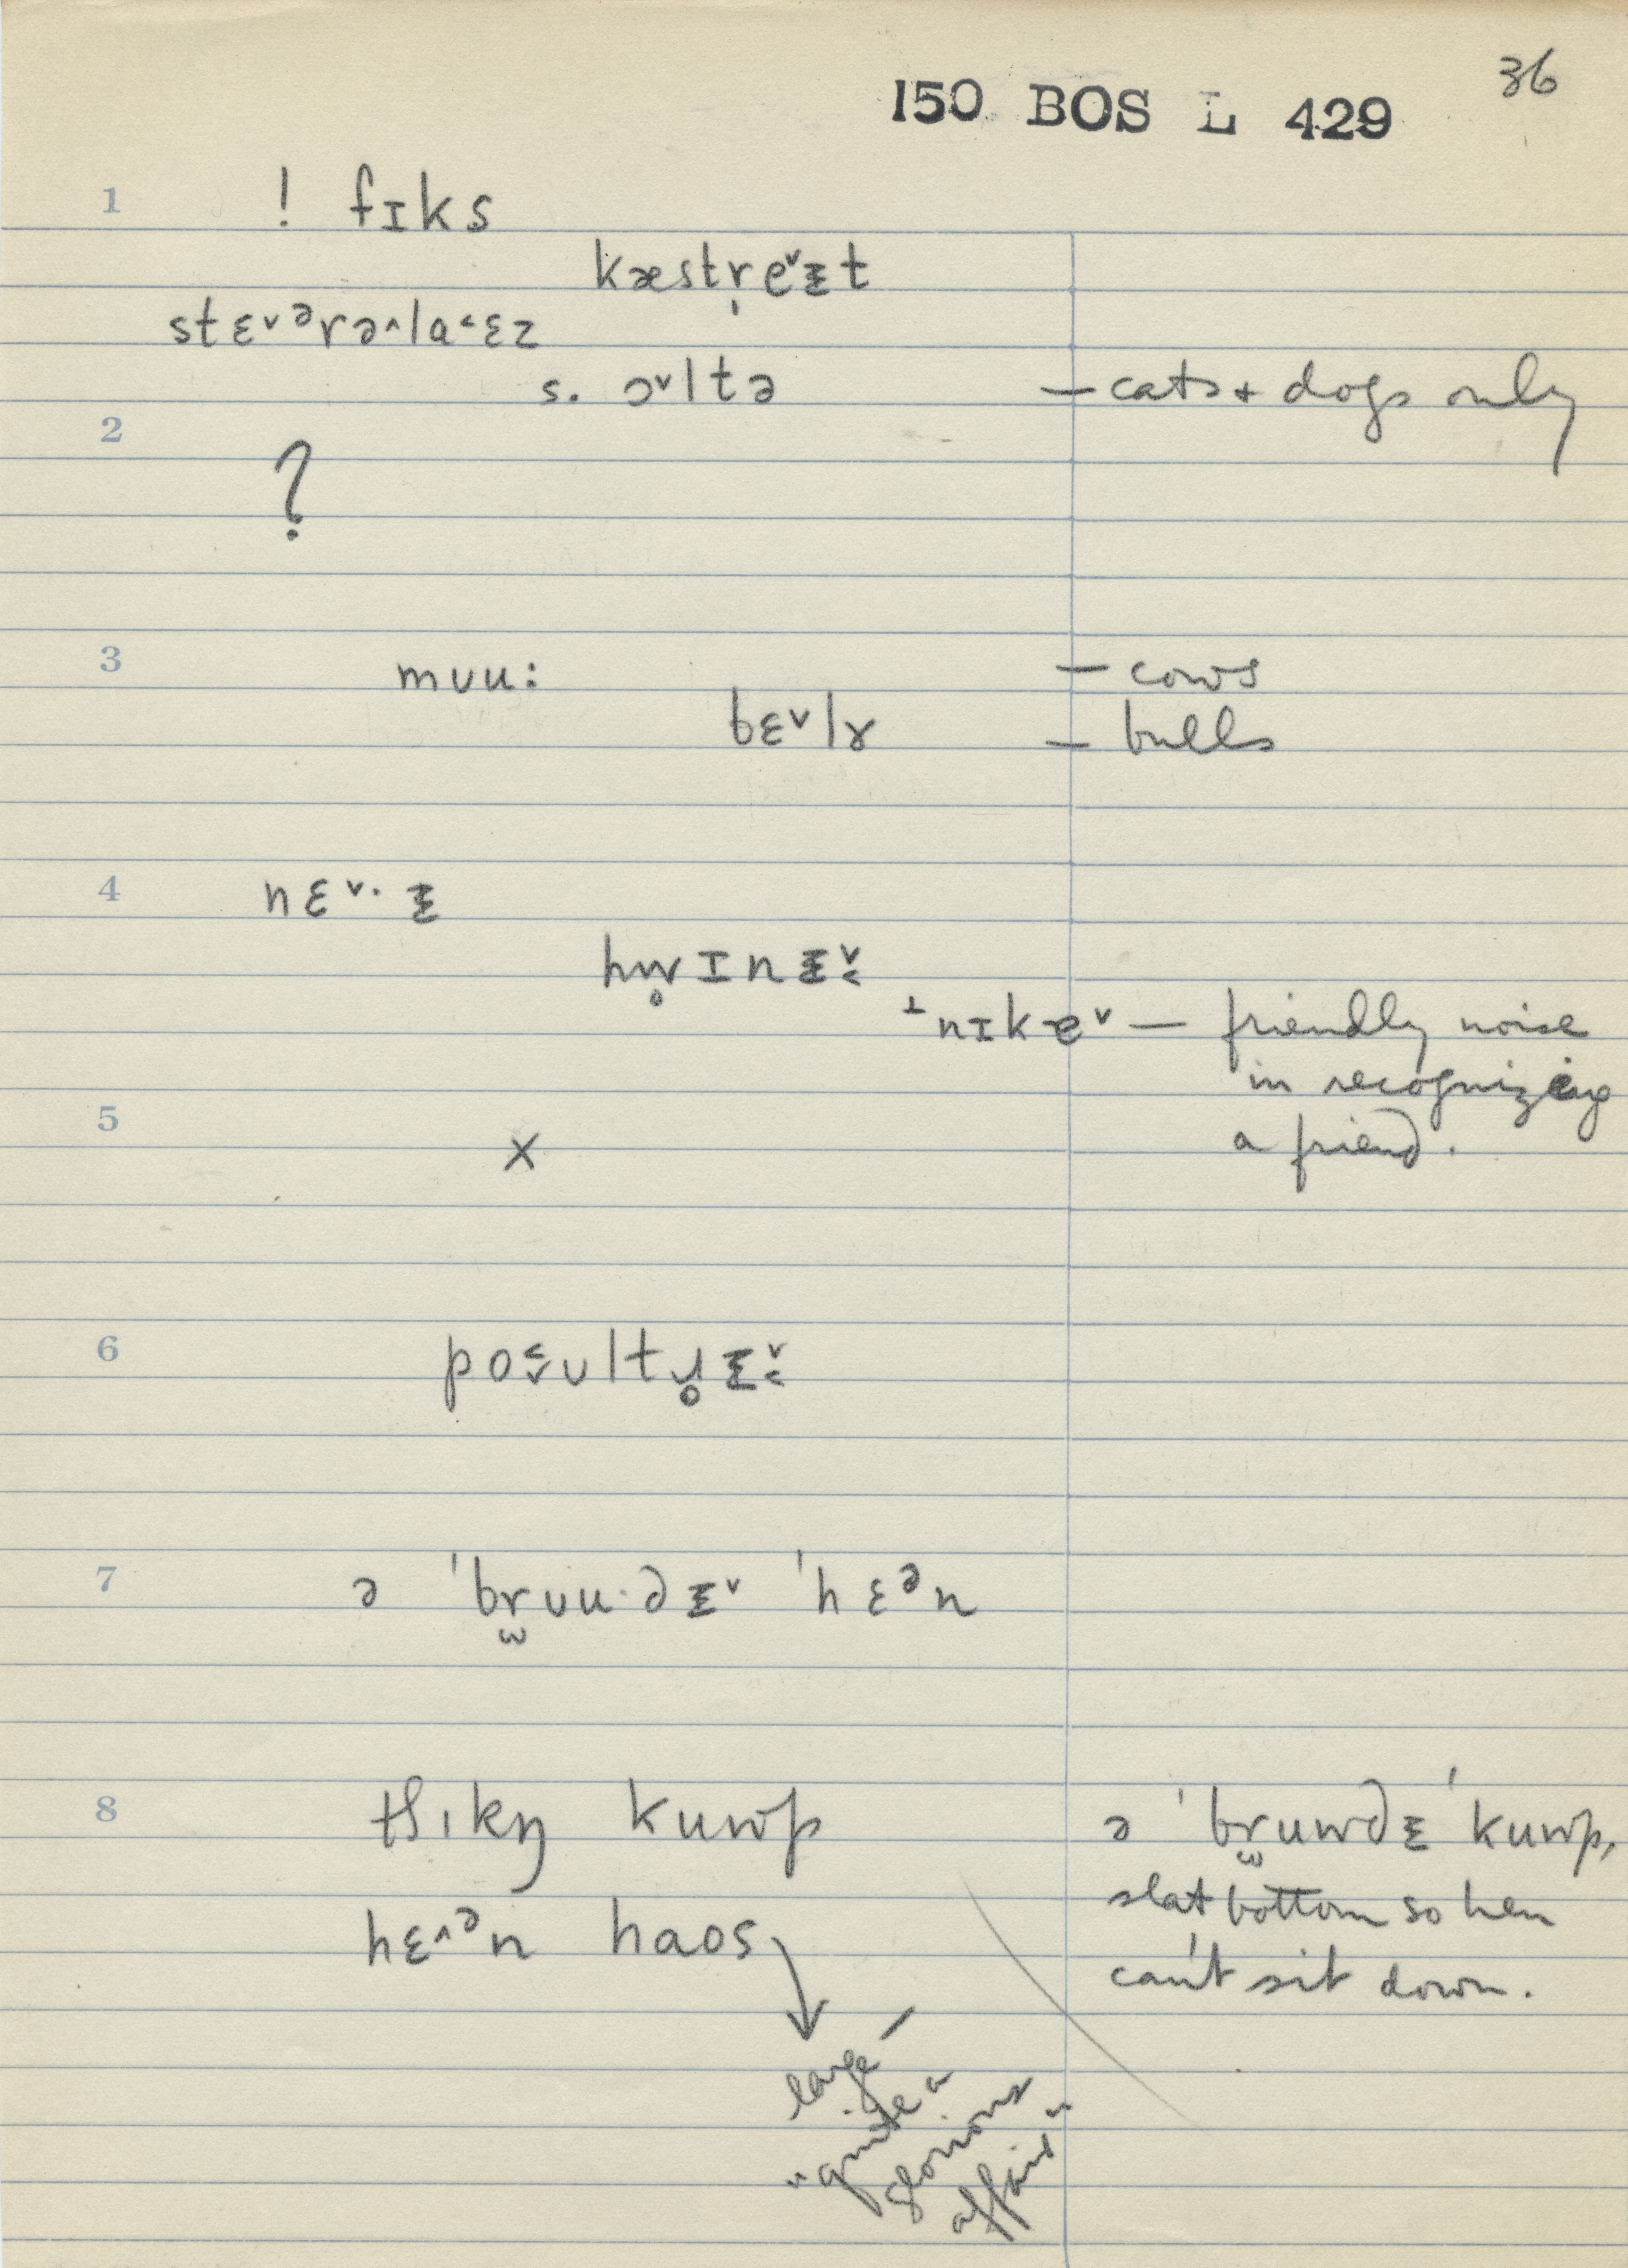 36
150 BOS L 429
1 ! fɪks
kæstṛeˇᵻt
stɛˇᵊrə^la˂ɛz
s. ɔˇltə — cats + dogs only
2
?
3 mʊu: — cows
bɛˇlɤ — bulls
4 nɛˇ· ᵻ
hw̥ɪnᵻˇ˂
⊥nɪkɐˇ — friendly noise
in recognizing
5 a friend.
x
6 po˂ˇʊltɹ̥ᵻˇ˂
7 ə ˈbr̫ʊu·dᵻˇ ˈhɛᵊn
8 tʃɪkŋ kuwp ə ˈbr̫uwdᵻ ˈkuwp,
slat bottom so hen
hɛ^ᵊn haos can't sit down.
large –
"quite a
glorious
affair"